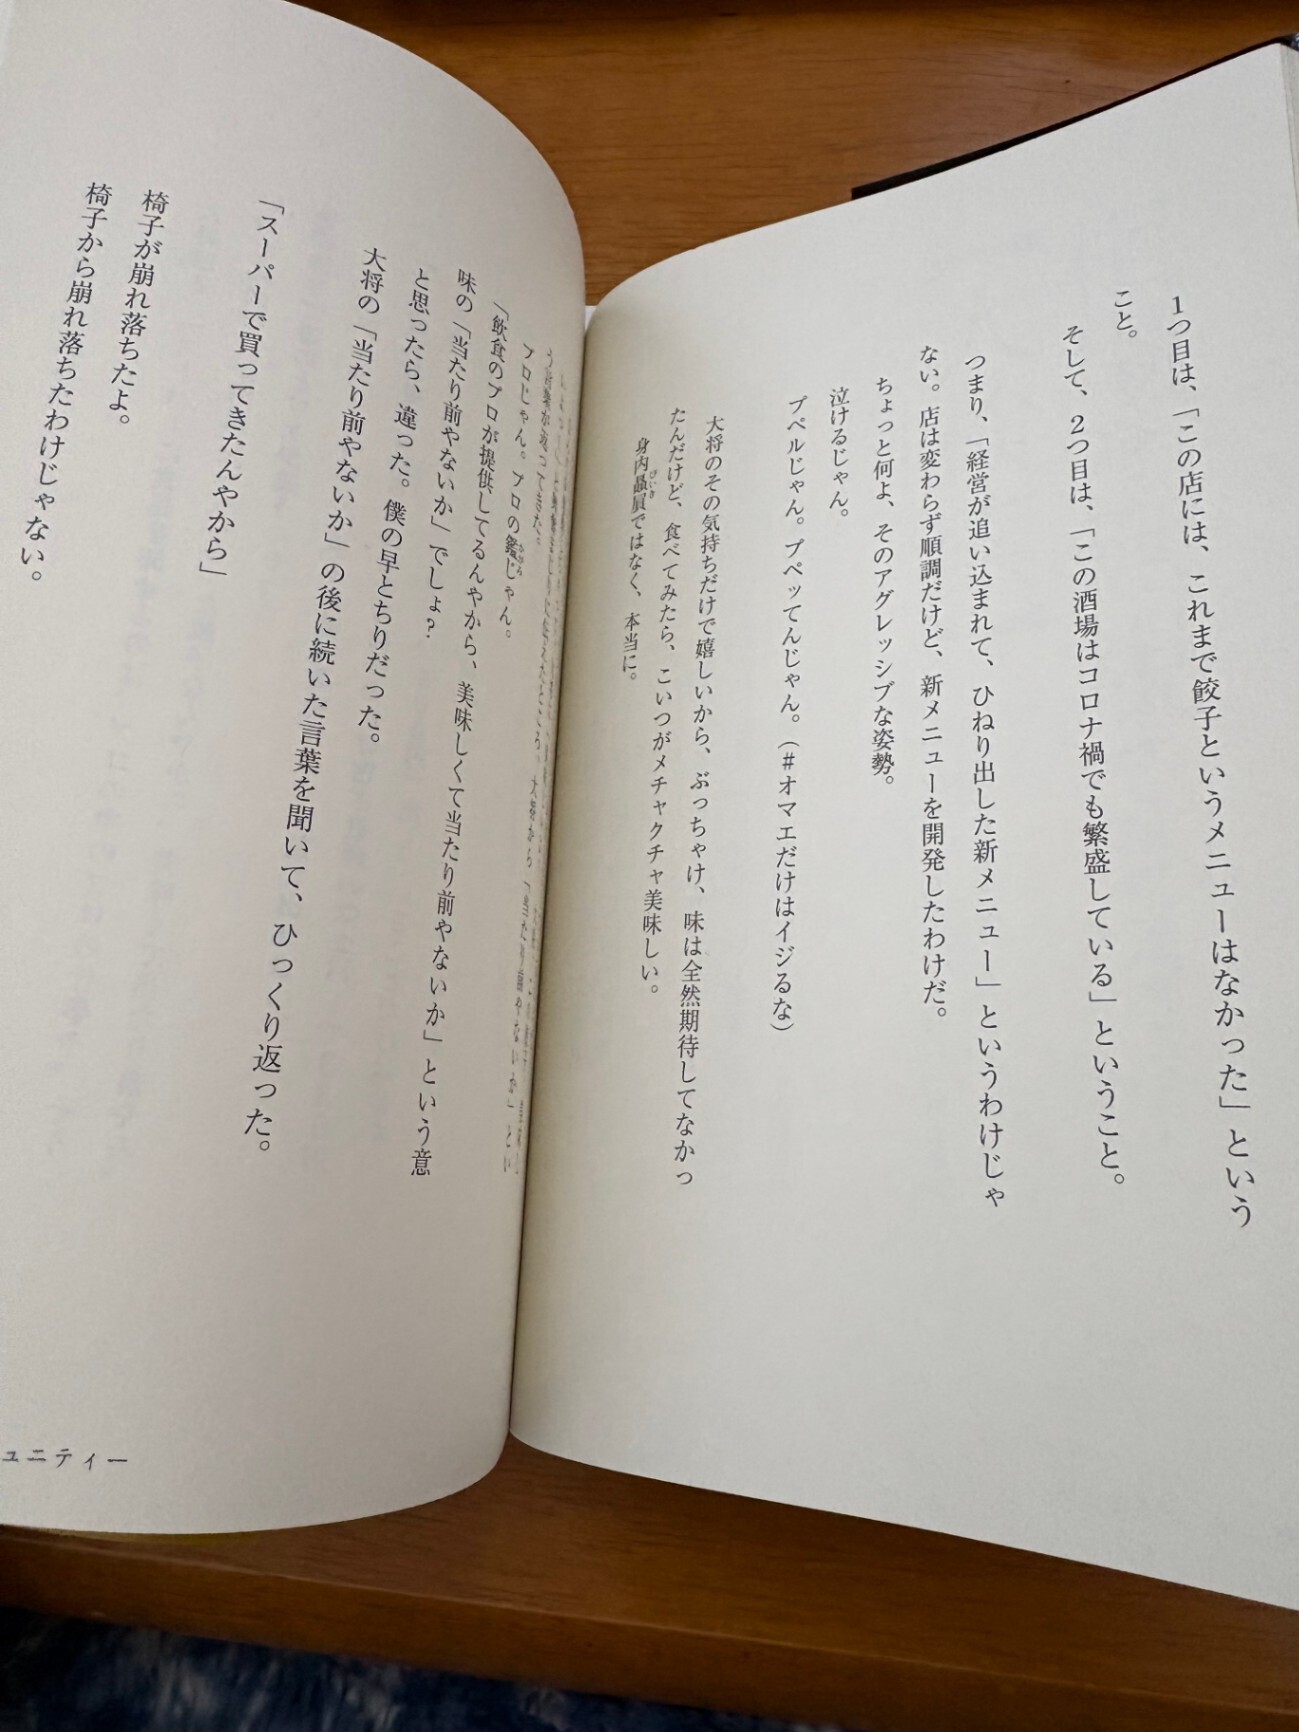 1つ目は、「この店には、これまで餃子というメニューはなかった」という
こと。
そして、2つ目は、「この酒場はコロナ禍でも繁盛している」ということ。
つまり、「経営が追い込まれて、ひねり出した新メニュー」というわけじゃ
ない。店は変わらず順調だけど、新メニューを開発したわけだ。
ちょっと何よ、そのアグレッシブな姿勢。
泣けるじゃん。
プペルじゃん。プペッてんじゃん。（＃オマエだけはイジるな）
大将のその気持ちだけで嬉しいから、ぶっちゃけ、味は全然期待してなかっ
たんだけど、食べてみたら、こいつがメチャクチャ美味しい。
身内贔屓ではなく、本当に。
びいき
大将から「当たり前やないか」とい
う言葉が返ってきた。
プロじゃん。プロの鑑じゃん。
かがみ
「飲食のプロが提供してるんやから、美味しくて当たり前やないか」という意
味の「当たり前やないか」でしょ？
と思ったら、違った。僕の早とちりだった。
大将の「当たり前やないか」の後に続いた言葉を聞いて、ひっくり返った。
「スーパーで買ってきたんやから」
椅子が崩れ落ちたよ。
椅子から崩れ落ちたわけじゃない。
ュニティー